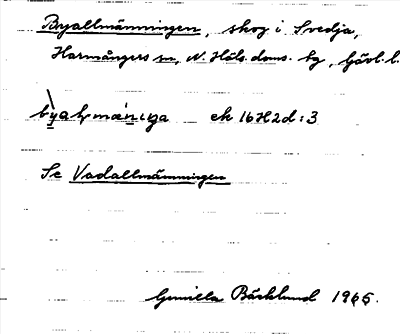 Byallmänningen, skog i Svedja,
Harmångers sn, N. Häls. doms. tg, Gävl. l.
ek 16H2d:3
Se Vadallmänningen
Gunilla Bäcklund 1965.